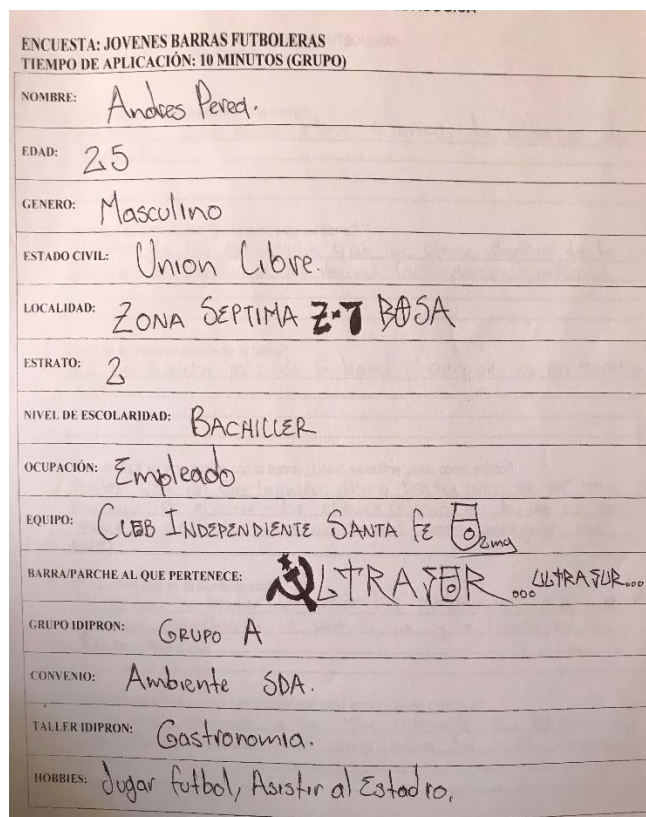 ENCUESTA: JOVENES BARRAS FUTBOLERAS
TIEMPO DE APLICACIÓN: 10 MINUTOS (GRUPO)
NOMBRE: Andres Perea.
EDAD: 25
GENERO: Masculino
ESTADO CIVIL: Union Libre.
LOCALIDAD: ZONA SEPTIMA Z-7 BOSA
ESTRATO: 2
NIVEL DE ESCOLARIDAD: BACHILLER
OCUPACIÓN: Empleado
EQUIPO: CLUB INDEPENDIENTE SANTA FE
BARRA/PARCHE AL QUE PERTENECE: ☭LTRASUR...ULTRASUR...
GRUPO IDIPRON: GRUPO A
CONVENIO: Ambiente SDA.
TALLER IDIPRON: Gastronomia.
HOBBIES: Jugar futbol, Asistir al Estadio.